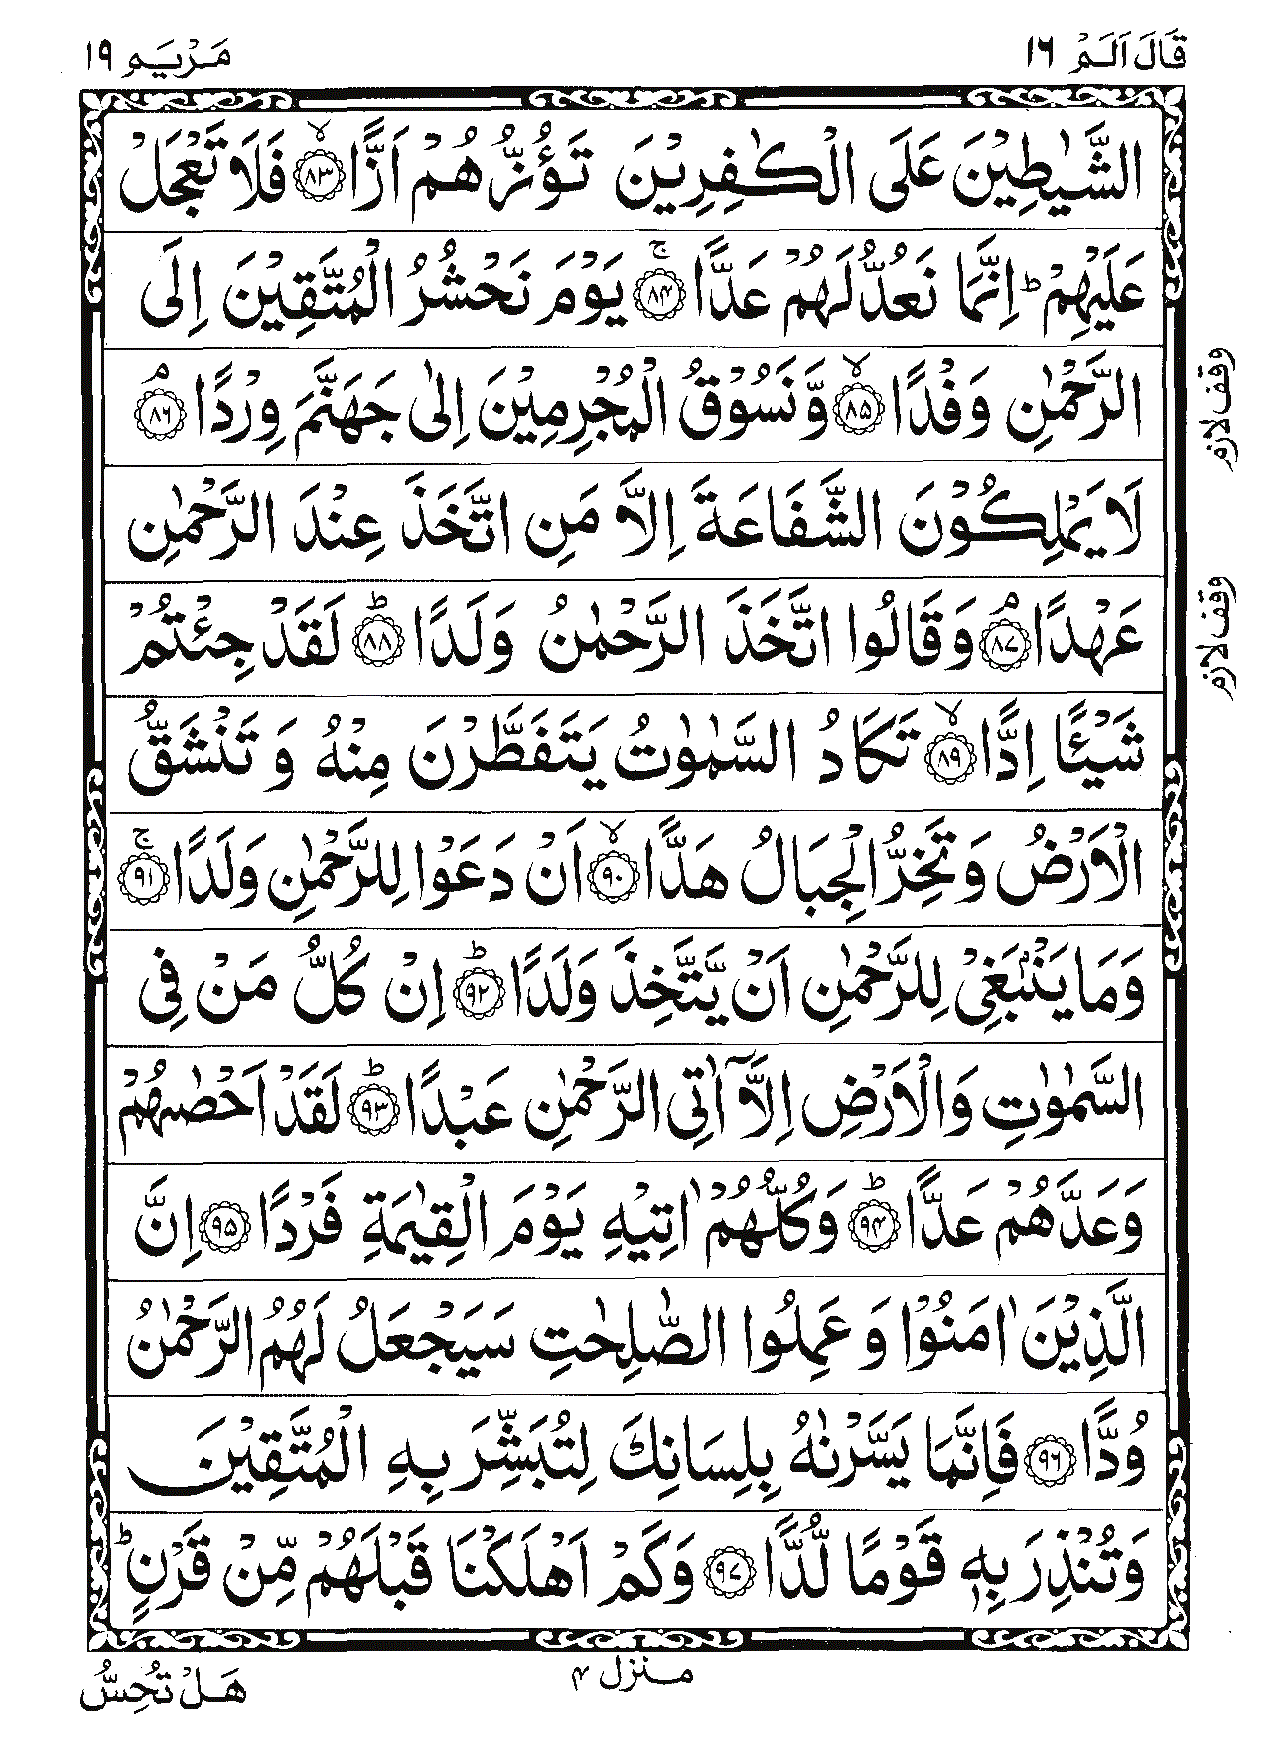 قَالَ اَلَمْ ١٦
مَرْيَم ١٩
الشَّيٰطِيْنَ عَلَى الْكٰفِرِيْنَ تَؤُزُّهُمْ اَزًّاۙ ﴿۸۳﴾ فَلَا تَعْجَلْ
عَلَيْهِمْؕ اِنَّمَا نَعُدُّ لَهُمْ عَدًّاۚ ﴿۸۴﴾ يَوْمَ نَحْشُرُ الْمُتَّقِيْنَ اِلَى
الرَّحْمٰنِ وَفْدًاۙ ﴿۸۵﴾ وَّنَسُوْقُ الْمُجْرِمِيْنَ اِلٰى جَهَنَّمَ وِرْدًاۘ ﴿۸۶﴾
وقف لازم
لَا يَمْلِكُوْنَ الشَّفَاعَةَ اِلَّا مَنِ اتَّخَذَ عِنْدَ الرَّحْمٰنِ
عَهْدًاۘ ﴿۸۷﴾ وَقَالُوا اتَّخَذَ الرَّحْمٰنُ وَلَدًاؕ ﴿۸۸﴾ لَقَدْ جِئْتُمْ
وقف لازم
شَيْئًا اِدًّاۙ ﴿۸۹﴾ تَكَادُ السَّمٰوٰتُ يَتَفَطَّرْنَ مِنْهُ وَ تَنْشَقُّ
الْاَرْضُ وَ تَخِرُّ الْجِبَالُ هَدًّاۙ ﴿۹۰﴾ اَنْ دَعَوْا لِلرَّحْمٰنِ وَلَدًاۚ ﴿۹۱﴾
وَمَا يَنْۢبَغِيْ لِلرَّحْمٰنِ اَنْ يَّتَّخِذَ وَلَدًاؕ ﴿۹۲﴾ اِنْ كُلُّ مَنْ فِى
السَّمٰوٰتِ وَالْاَرْضِ اِلَّاۤ اٰتِى الرَّحْمٰنِ عَبْدًاؕ ﴿۹۳﴾ لَقَدْ اَحْصٰىهُمْ
وَعَدَّهُمْ عَدًّاؕ ﴿۹۴﴾ وَكُلُّهُمْ اٰتِيْهِ يَوْمَ الْقِيٰمَةِ فَرْدًا ﴿۹۵﴾ اِنَّ
الَّذِيْنَ اٰمَنُوْا وَ عَمِلُوا الصّٰلِحٰتِ سَيَجْعَلُ لَهُمُ الرَّحْمٰنُ
وُدًّا ﴿۹۶﴾ فَاِنَّمَا يَسَّرْنٰهُ بِلِسَانِكَ لِتُبَشِّرَ بِهِ الْمُتَّقِيْنَ
وَتُنْذِرَ بِهٖ قَوْمًا لُّدًّا ﴿۹۷﴾ وَكَمْ اَهْلَكْنَا قَبْلَهُمْ مِّنْ قَرْنٍؕ
منزل ۴
هَلْ تُحِسُّ